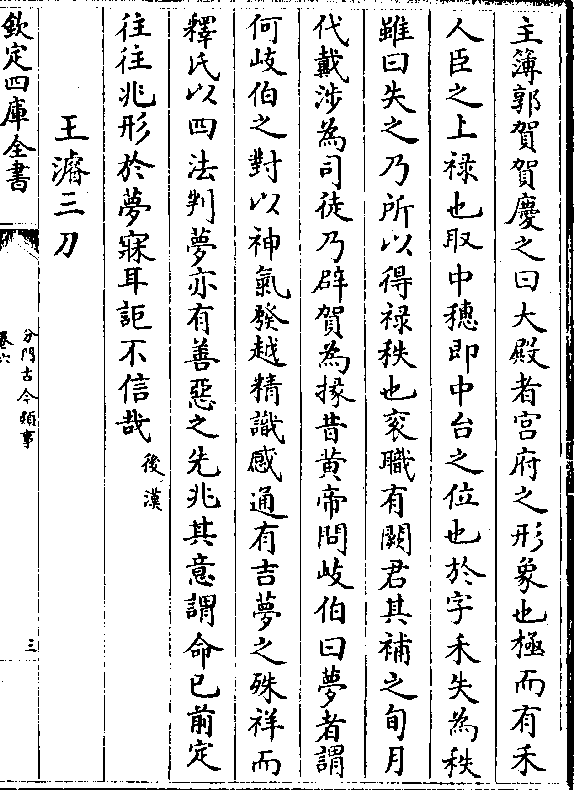 主簿郭賀賀慶之曰大殿者宫府之形象也極而有禾
人臣之上禄也取中穗即中台之位也於字禾失為秩
雖曰失之乃所以得禄秩也衮職有闕君其補之旬月
代戴涉為司徒乃辟賀為掾昔黄帝問岐伯曰夢者謂
何岐伯之對以神氣發越精識感通有吉夢之殊祥而
釋氏以四法判夢亦有善惡之先兆其意謂命已前定
往往兆形於夢寐耳詎不信哉後漢
王濬三刀
欽定四庫全書
分門古今類事
卷六
三